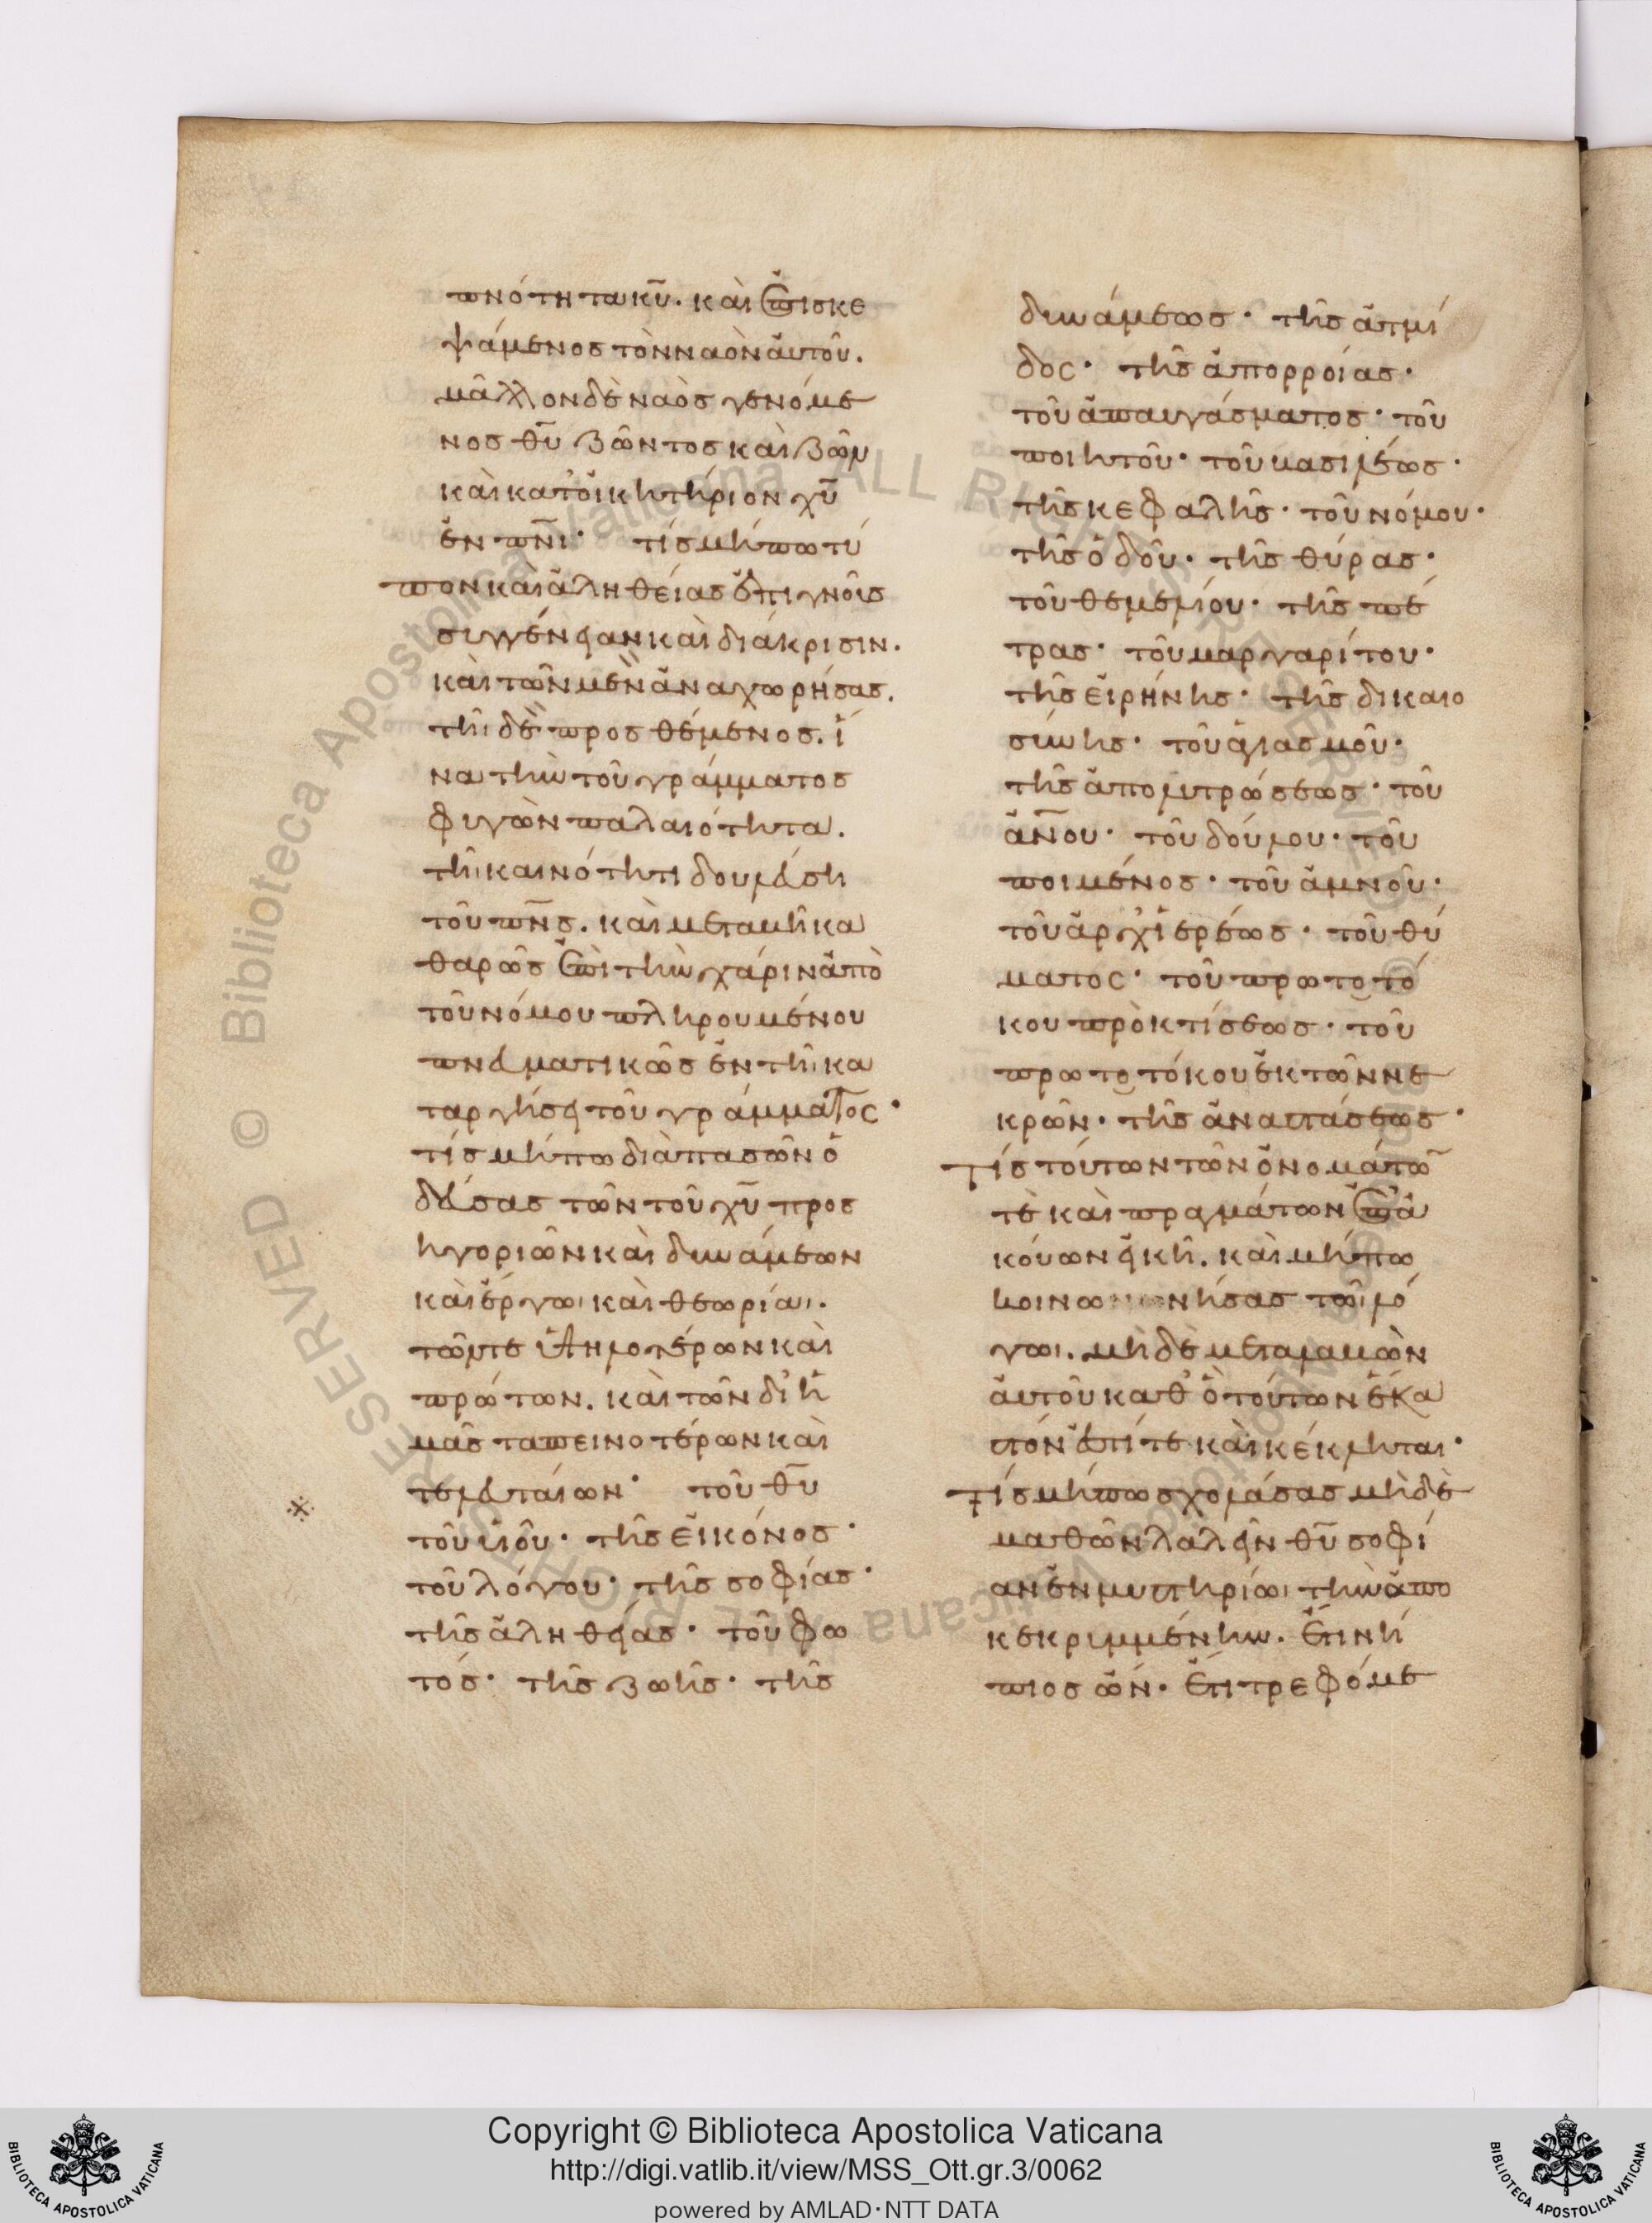 πνότητα κ̅υ̅. καὶ ἐπισκε
ψάμενος τὸν ναὸν ἀυτοῦ.
μᾶλλον δὲ ναὸς γενόμε
νος θ̅υ̅ ζῶντος καὶ ζῶν
καὶ κατοἰκητήριον χ̅υ̅
ἐν π̅ν̅ι̅· τίς μήπω τύ
πον καὶ ἀληθείας ἐπιγνοὺς
συγγένειαν καὶ διάκρισιν.
καὶ τῶν μὲν ἀναχωρήσας.
τῆι δὲ προσθέμενος. ἵ
να τὴν τοῦ γράμματος
φυγὼν παλαιότητα.
τῆι καινότητι δουλεύση
τοῦ π̅ν̅ς̅. καὶ μεταβῆ κα
θαρῶς ἐπὶ τὴν χάριν ἀπὸ
τοῦ νόμου πληρουμένου
πνευματικῶς ἐν τῆι κα
ταργήσει τοῦ γράμματος·
τίς μήπω διὰ πασῶν ὁ
δεύσας τῶν τοῦ χ̅υ̅ προσ
ηγοριῶν καὶ δυνάμεων
καὶ ἔργωι καὶ θεωρίαι.
τῶν τε ὑψηλοτέρων καὶ
πρώτων. καὶ τῶν δι' ἡ
μᾶς ταπεινοτέρων καὶ
τελευταίων· τοῦ θ̅υ̅
τοῦ υἱοῦ· τῆς εἰκόνος·
τοῦ λόγου· τῆς σοφίας·
τῆς ἀληθείας· τοῦ φω
τός· τῆς ζωῆς· τῆς
δυνάμεως· τῆς ἀτμί
δος· τῆς ἀπορροίας·
τοῦ ἀπαυγάσματος· τοῦ
ποιητοῦ· τοῦ βασιλέως·
τῆς κεφαλῆς· τοῦ νόμου·
τῆς ὁδοῦ· τῆς θύρας·
τοῦ θεμελίου· τῆς πέ
τρας· τοῦ μαργαρίτου·
τῆς εἰρήνης· τῆς δικαιο
σύνης· τοῦ ἁγιασμοῦ·
τῆς ἀπολυτρώσεως· τοῦ
ἀν̅ο̅υ̅· τοῦ δούλου· τοῦ
ποιμένος· τοῦ ἀμνοῦ·
τοῦ ἀρχἱερέως· τοῦ θύ
ματος· τοῦ πρωτοτό
κου πρὸ κτίσεως· τοῦ
πρωτοτόκου ἐκ τῶν νε
κρῶν· τῆς ἀναστάσεως·
Τίς τούτων τῶν ὀνομάτω̅
τὲ καὶ πραγμάτων ἐπα
κούων εἰκῆ. καὶ μήπω
κοινωνήσας τῶι λό
γωι. μὴδὲ μεταλαβὼν
ἀυτοῦ καθ' ὃ τούτων ἕκα
στόν ἐστί τε καὶ κέκληται·
Τίς μήπω σχολάσας μὴδὲ
μαθὼν λαλεῖν θ̅υ̅ σοφί
αν ἐν μυστηρίωι τὴν ἀπο
κεκρυμμένην. ἔτι νή
πιος ὤν. ἔτι τρεφόμε
Copyright © Biblioteca Apostolica Vaticana
http://digi.vatlib.it/view/MSS_Ott.gr.3/0062
powered by AMLAD·NTT DATA